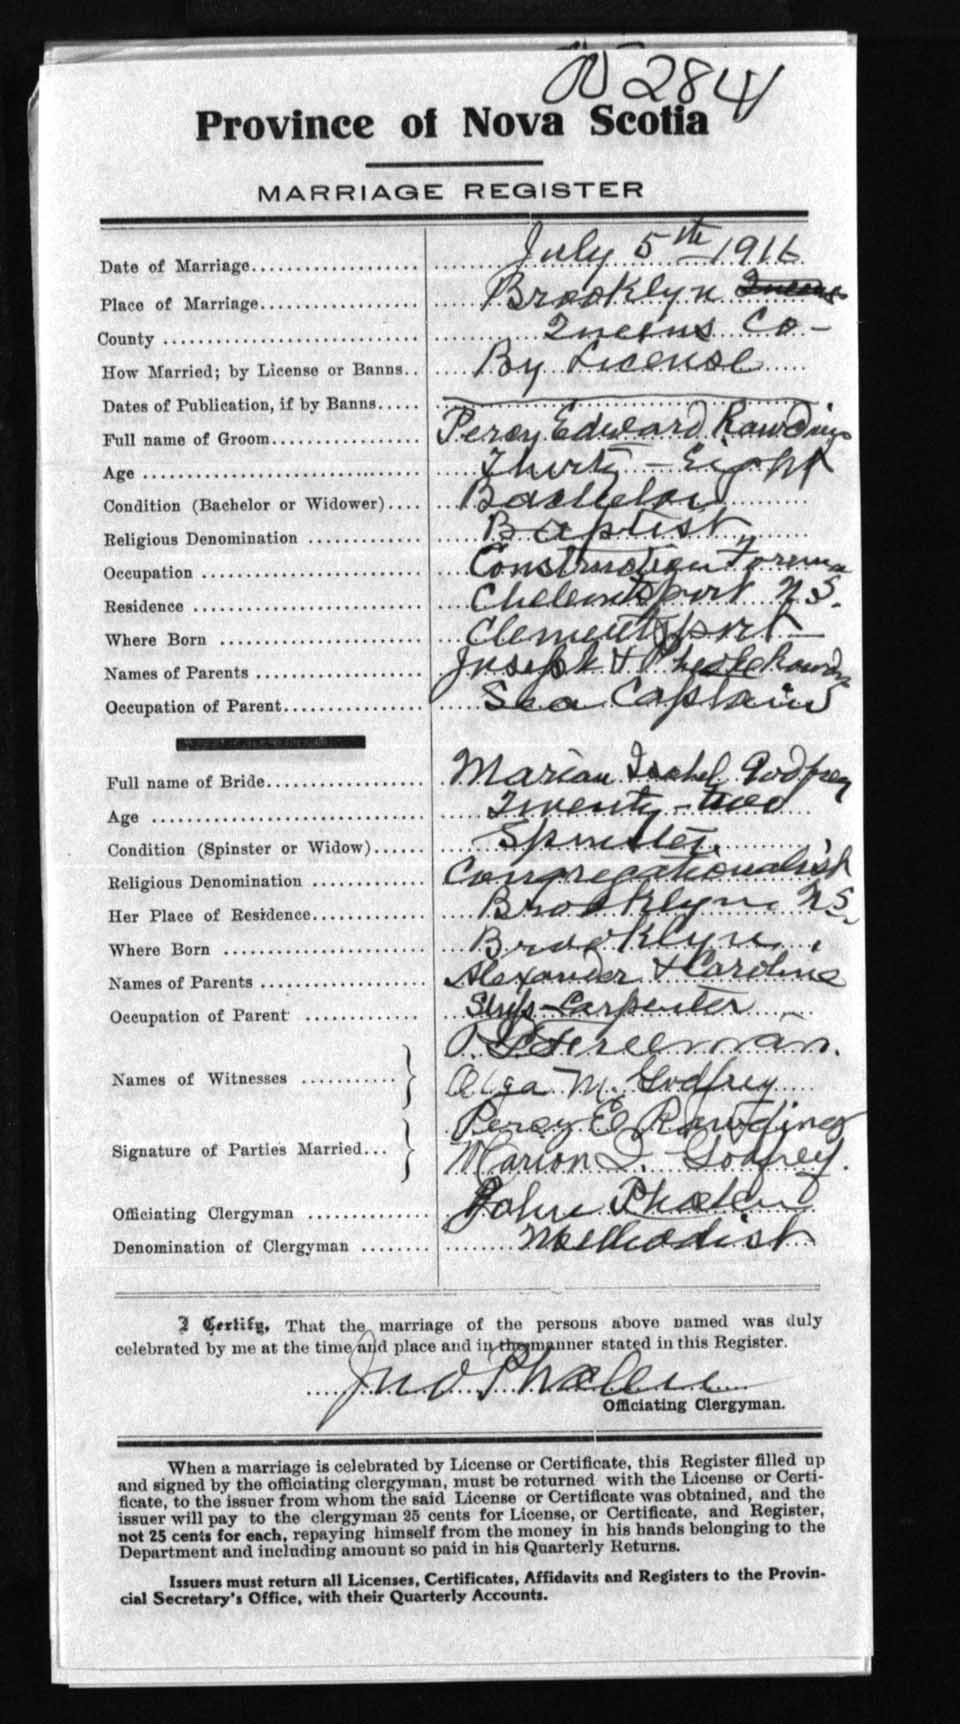 2841
Province of Nova Scotia
MARRIAGE REGISTER
Date of Marriage.................. July 5th 1916
Place of Marriage................. Brooklyn Queens
County ............................ Queens Co-
How Married; by License or Banns.. By License
Dates of Publication, if by Banns.....
Full name of Groom................ Percy Edward Rawding
Age ............................... Thirty-Eight
Condition (Bachelor or Widower).... Bachelor
Religious Denomination ............ Baptist
Occupation ........................ Construction Forema
Residence ......................... Chelemtsport N.S.
Where Born ........................ Clementsport
Names of Parents .................. Joseph & Rawdin
Occupation of Parent............... Sea Captain
Full name of Bride................. Marian Isabel Godfrey
Age ............................... Twenty-two
Condition (Spinster or Widow)...... Spinster.
Religious Denomination ............ Congregationalist
Her Place of Residence............. Brooklyn N.S.
Where Born ........................ Brooklyn
Names of Parents .................. Alexander & Caroline
Occupation of Parent .............. Ships-Carpenter
Freeman.
Names of Witnesses ........... Olga M. Godfrey
Percy E Rawding
Signature of Parties Married... Marion I. Godfrey.
Officiating Clergyman .............. John Phalen
Denomination of Clergyman ........ Methodist
I Certify, That the marriage of the persons above named was duly
celebrated by me at the time and place and in the manner stated in this Register.
Jno Phalen
Officiating Clergyman.
When a marriage is celebrated by License or Certificate, this Register filled up
and signed by the officiating clergyman, must be returned with the License or Certi-
ficate, to the issuer from whom the said License or Certificate was obtained, and the
issuer will pay to the clergyman 25 cents for License, or Certificate, and Register,
not 25 cents for each, repaying himself from the money in his hands belonging to the
Department and including amount so paid in his Quarterly Returns.
Issuers must return all Licenses, Certificates, Affidavits and Registers to the Provin-
cial Secretary's Office, with their Quarterly Accounts.